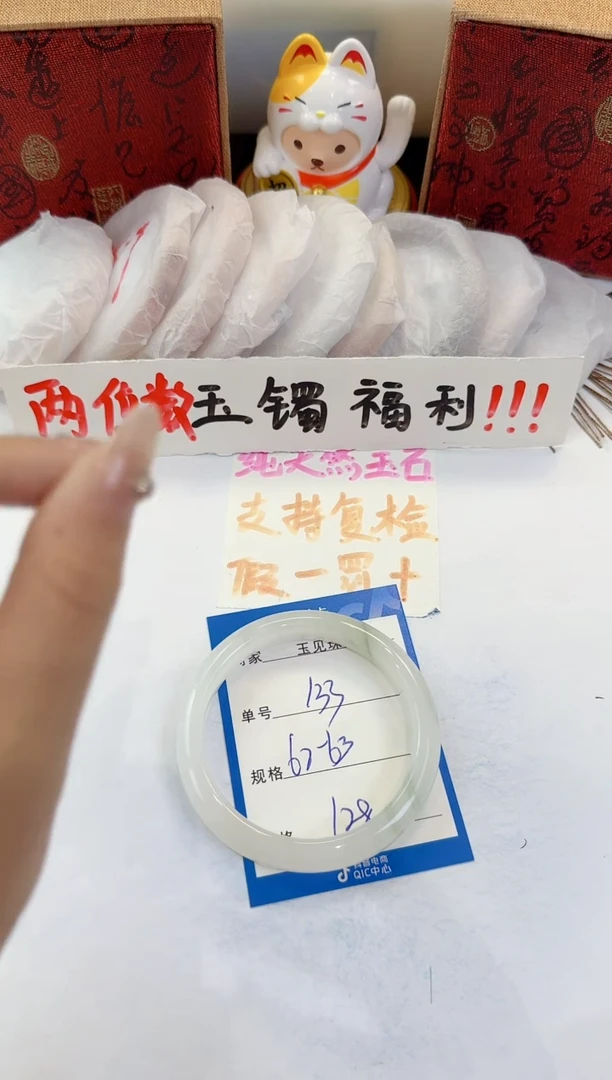 两位数玉镯福利!!!
纯天然玉石
支持复检
假一罚十
家 玉见珠
单号 133
规格 62-63
格 128
抖音电商
QIC中心